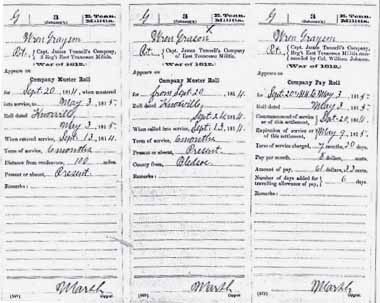 G 3 E. Tenn.
(Tunnell's) Militia.
Wren Grayson
Pvt. Capt. James Tunnell's Company,
3 Reg't East Tennessee Militia.
(War of 1812.)
Appears on
Company Muster Roll
for Sept 20, 1814, when mustered
into service, to May 3, 1815.
Roll dated Knoxville,
May 3, 1815.
When entered service, Sept 13, 1814.
Term of service, 6 months
Distance from residence, 100 miles.
Present or absent, Present.
Remarks:
Marsh
Copyist.
G 3 E. Tenn.
Militia.
Pvt. Capt. James Tunnell's Company,
of East Tennessee Militia.
(War of 1812.)
Appears on
Company Muster Roll
for from Sept 20
Roll dated Knoxville,
1814.
When called into service, Sept. 13, 1814.
Term of service, 6 months
Present or absent, Present.
County from, Bledsoe
Remarks:
Marsh
Copyist.
G 3 E. Tenn.
Militia.
Wren Grayson
Pvt. Capt. James Tunnell's Company,
3 Reg't East Tennessee Militia, com-
manded by Col. William Johnson.
(War of 1812.)
Appears on
Company Pay Roll
for Sept 20, 1814 to May 3, 1815.
Roll dated May 3, 1815.
Commencement of service or
of this settlement, Sept 20, 1814.
Expiration of service or
of this settlement, May 9, 1815.
Term of service charged, 7 months, 20 days.
Pay per month, 8 dollars, cents.
Amount of pay, 61 dollars, 33 cents.
Number of days added for
travelling allowance of pay, 6 days
Remarks:
Marsh
Copyist.